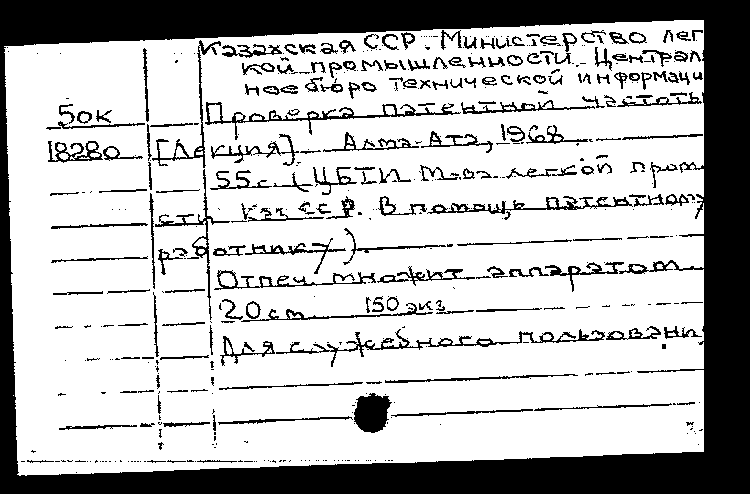 Казахская ССР. Министерство лег
кой промышленности. Централь
ное бюро технической информаци
50к Проверка патентной частоты
18280 [Лекция]. Алма-Ата, 1968.
55с. (ЦБТИ М-ва легкой пром-
сти Каз. ССР. В помощь патентному
работнику).
Отпеч. множит. аппаратом.
20см. 150 экз.
Для служебного пользования